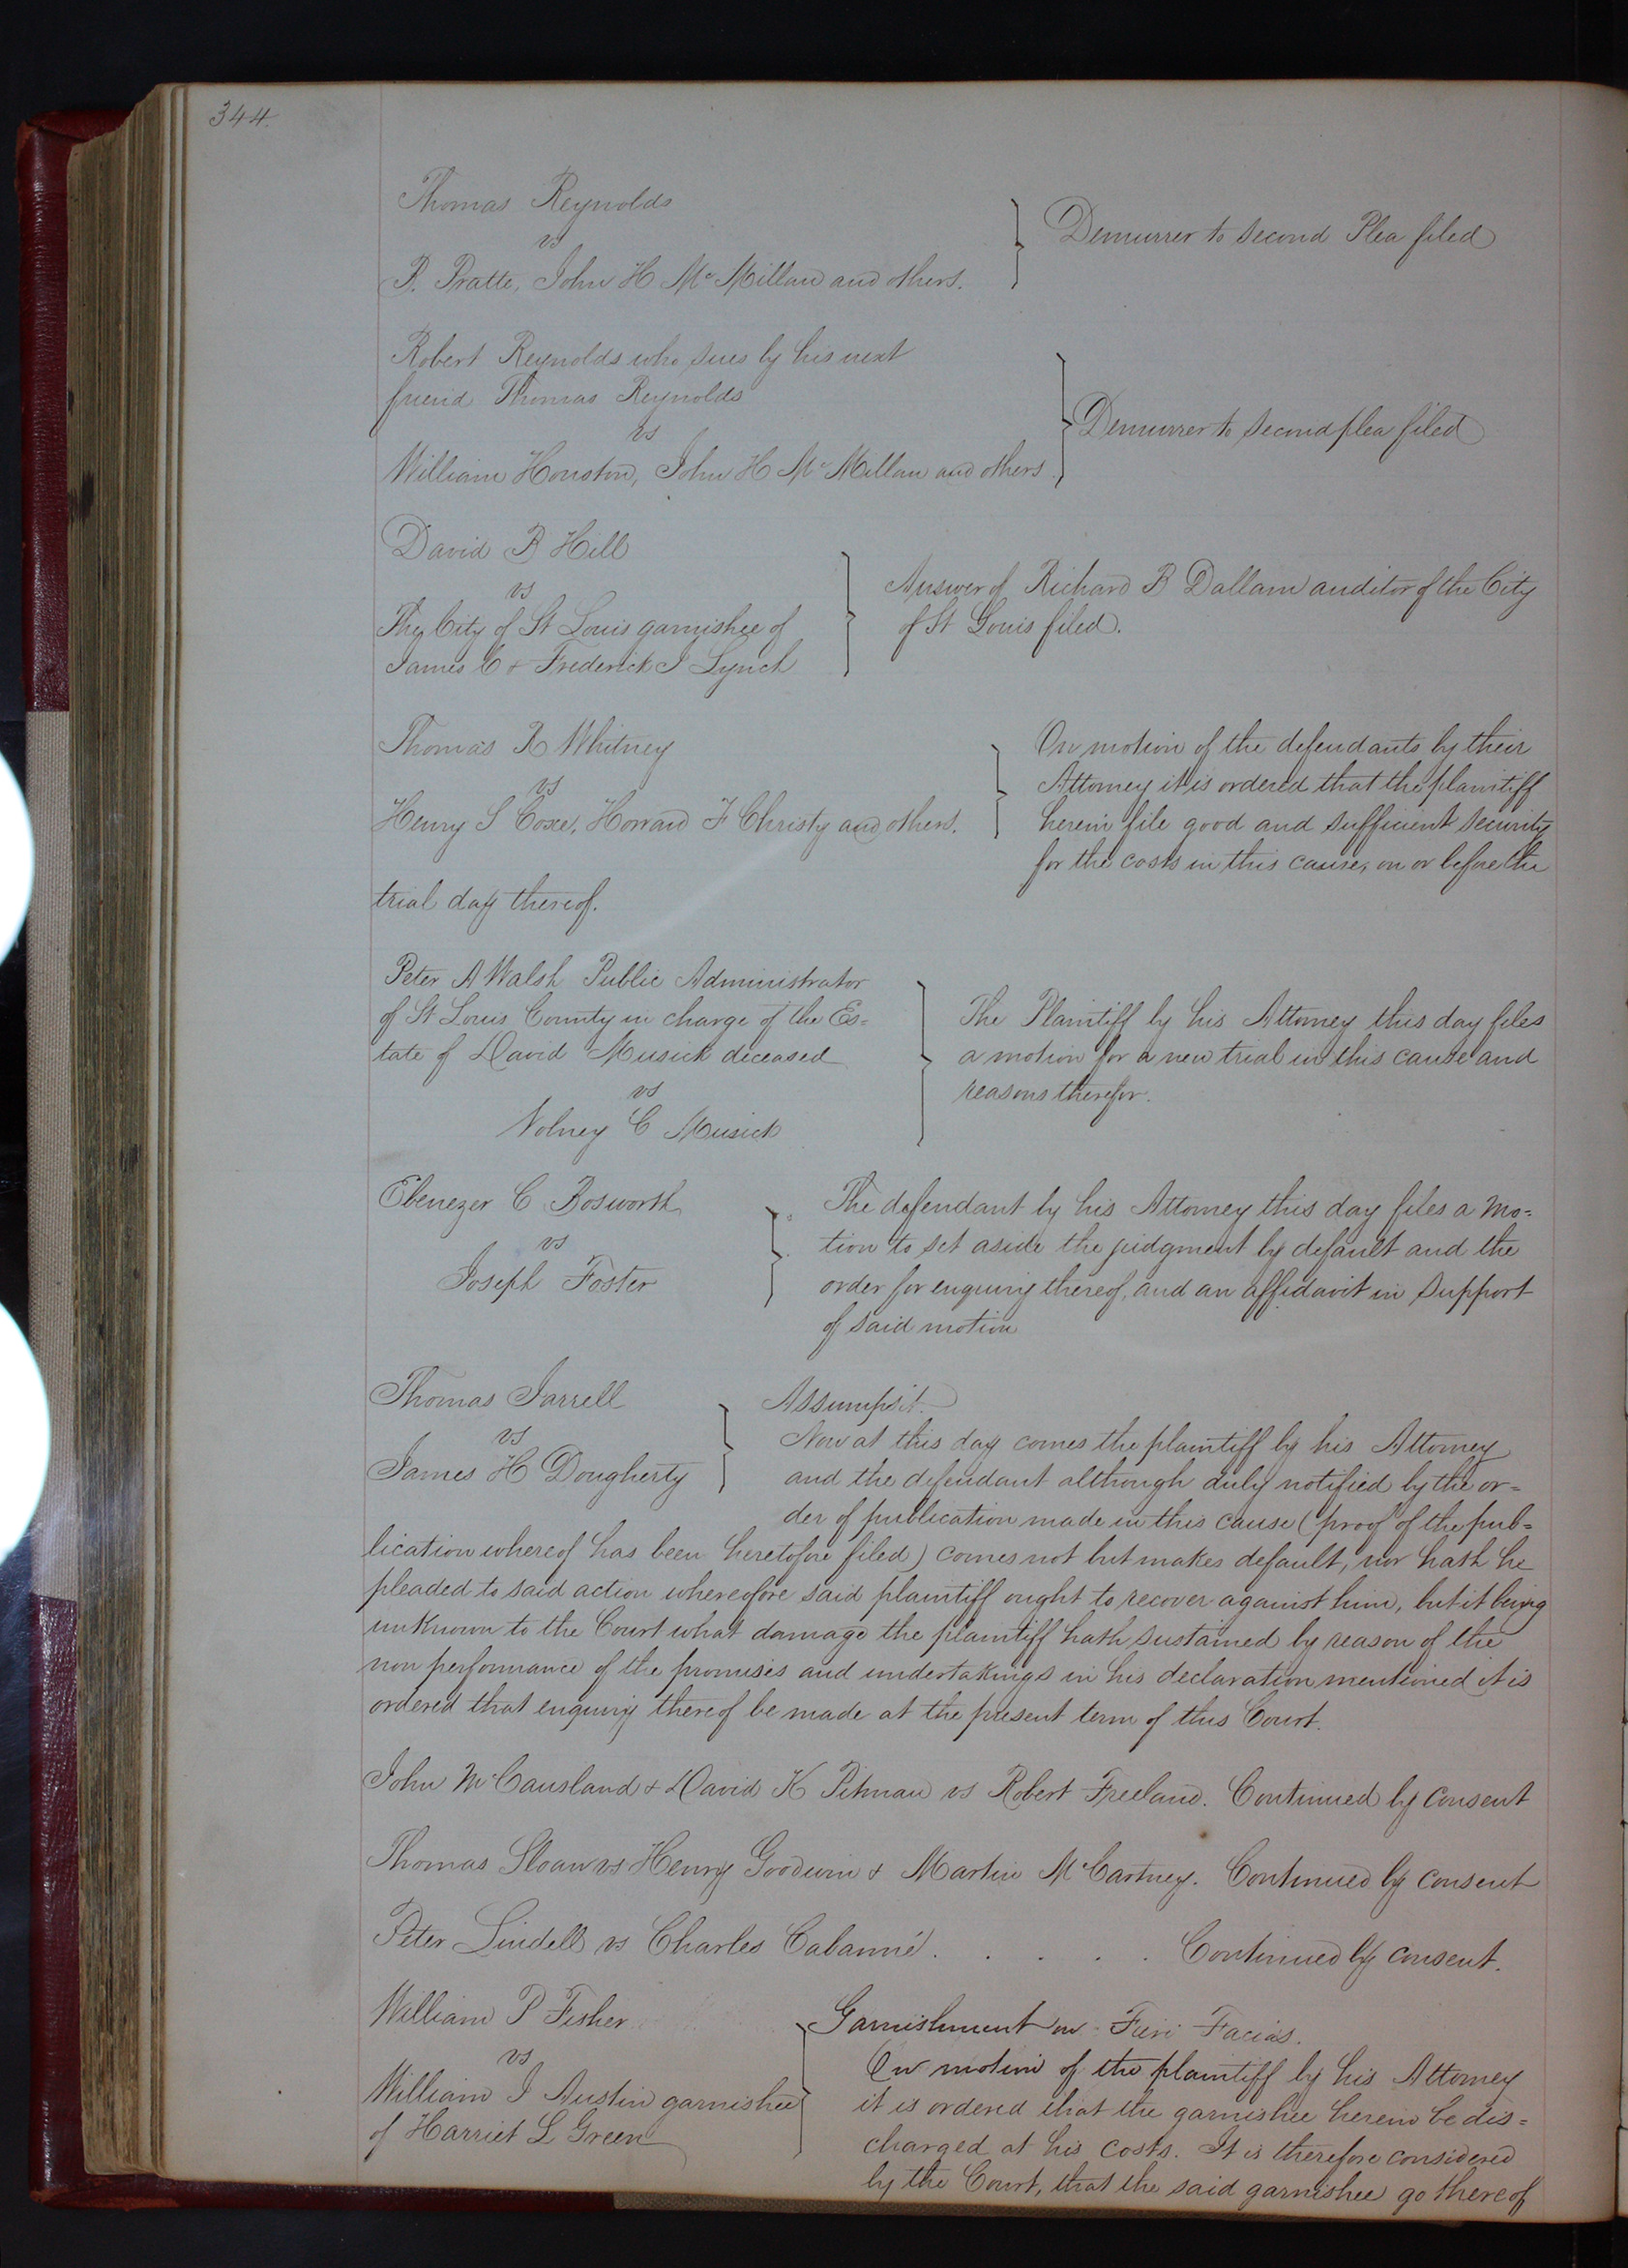 344.
Thomas Reynolds
vs
P. Pratte, John H McMillan and others.
Demurrer to second Plea filed
Robert Reynolds who sues by his next
friend Thomas Reynolds
vs
William Houston, John H McMillan and others
Demurrer to second plea filed
David B Hill
vs
The City of St Louis garnishee of
James C & Frederick J Lynch
Answer of Richard B Dallam auditor of the City
of St Louis filed.
Thomas R Whitney
vs
Henry S Coxe, Howard F Christy and others.
On motion of the defendants by their
Attorney it is ordered that the plaintiff
herein file good and sufficient security
for the costs in this cause, on or before the
trial day thereof.
Peter A Walsh Public Administrator
of St Louis County in charge of the Es=
tate of David Musick deceased
vs
Volney C Musick
The Plaintiff by his Attorney this day files
a motion for a new trial in this cause and
reasons therefor.
Ebenezer C Bosworth
vs
Joseph Foster
The defendant by his Attorney this day files a mo=
tion to set aside the judgment by default and the
order for enquiry thereof, and an affidavit in support
of said motion
Thomas Jarrell
vs
James H Dougherty
Assumpsit.
Now at this day comes the plaintiff by his Attorney
and the defendant although duly notified by the or=
der of publication made in this cause (proof of the pub=
lication whereof has been heretofore filed) comes not but makes default, nor hath he
pleaded to said action wherefore said plaintiff ought to recover against him, but it being
unknown to the Court what damage the plaintiff hath sustained by reason of the
non performance of the promises and undertakings in his declaration mentioned it is
ordered that enquiry thereof be made at the present term of this Court.
John McCausland & David K Pitman vs Robert Freeland. Continued by consent
Thomas Sloan vs Henry Goodwin & Martin McCartney. Continued by consent
Peter Lindell vs Charles Cabanné. . . . . . Continued by consent.
William P Fisher
vs
William J Austin garnishee
of Harriet L Green
Garnishment on Fieri Facias.
On motion of the plaintiff by his Attorney
it is ordered that the garnishee herein be dis=
charged at his costs. It is therefore considered
by the Court, that the said garnishee go thereof